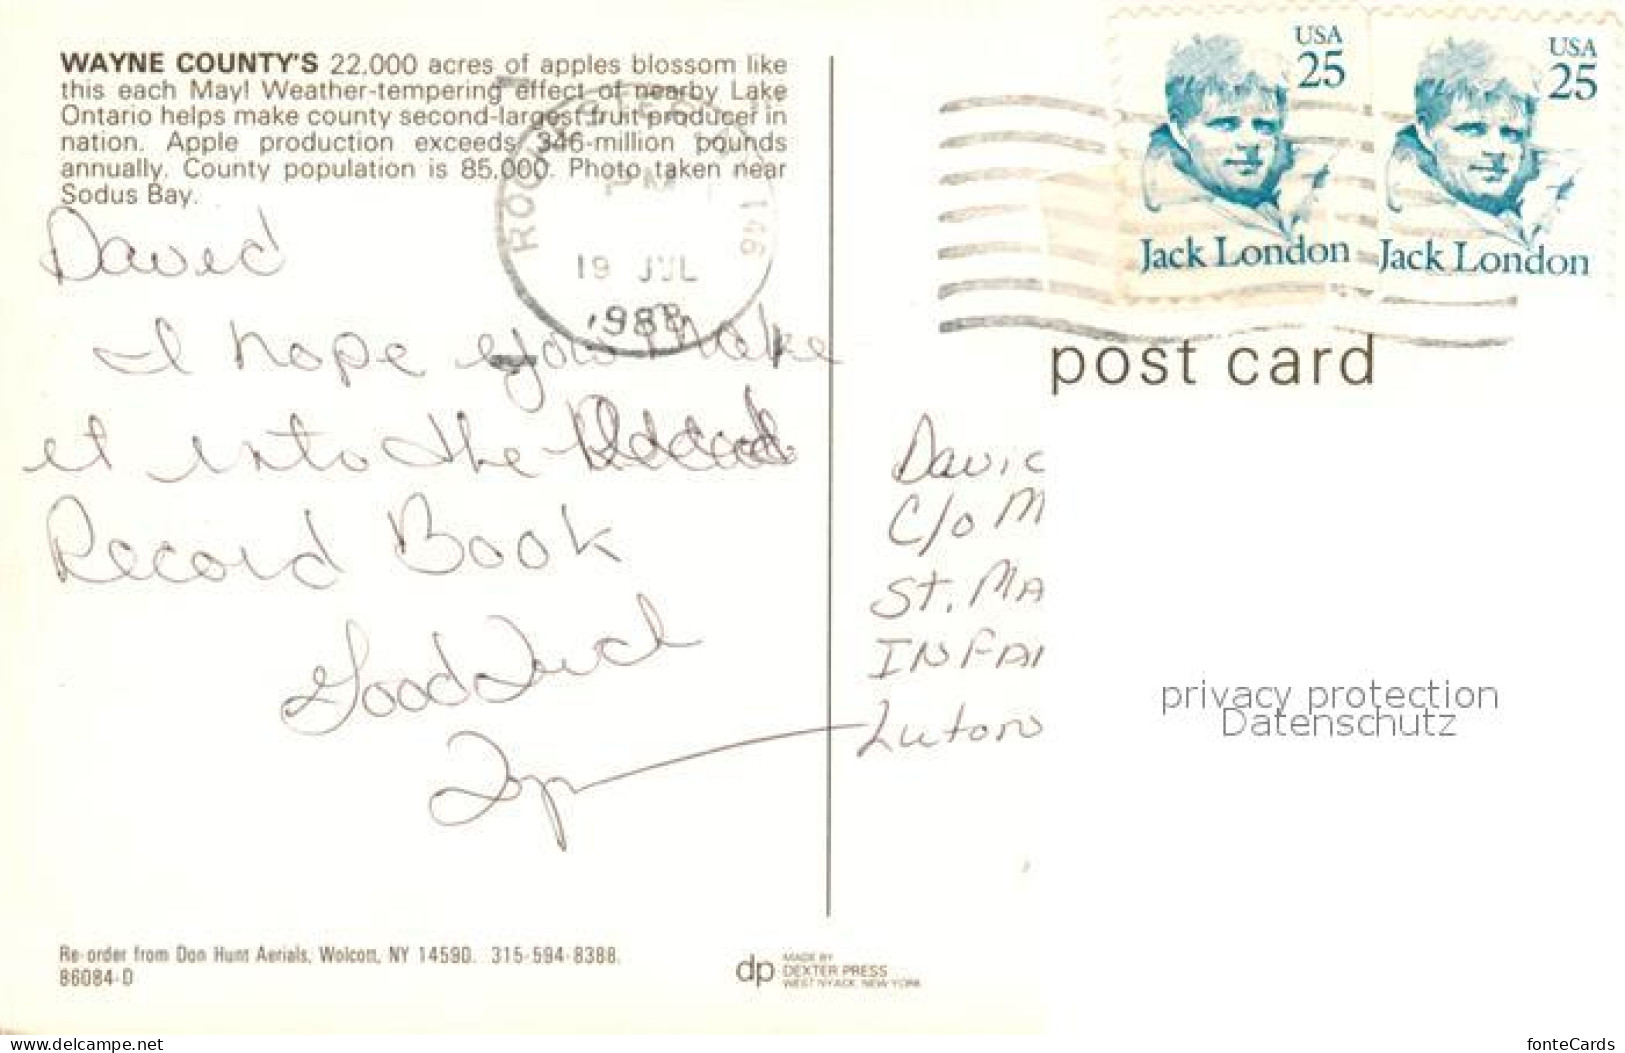 WAYNE COUNTY'S 22.000 acres of apples blossom like
this each May! Weather-tempering effect of nearby Lake
Ontario helps make county second-largest fruit producer in
nation. Apple production exceeds 346-million pounds
annually. County population is 85,000. Photo taken near
Sodus Bay.
David
I hope you make
it into the
Record Book
Good Luck
19 JUL
1988
146
USA
25
Jack London
USA
25
Jack London
post card
David
C/o M
St. MA
INFAN
Luton
privacy protection
Datenschutz
Re-order from Don Hunt Aerials, Wolcott, NY 14590. 315-594-8388.
86084-D
dp MADE BY
DEXTER PRESS
WEST NYACK, NEW YORK
delcampe.net
fonteCards